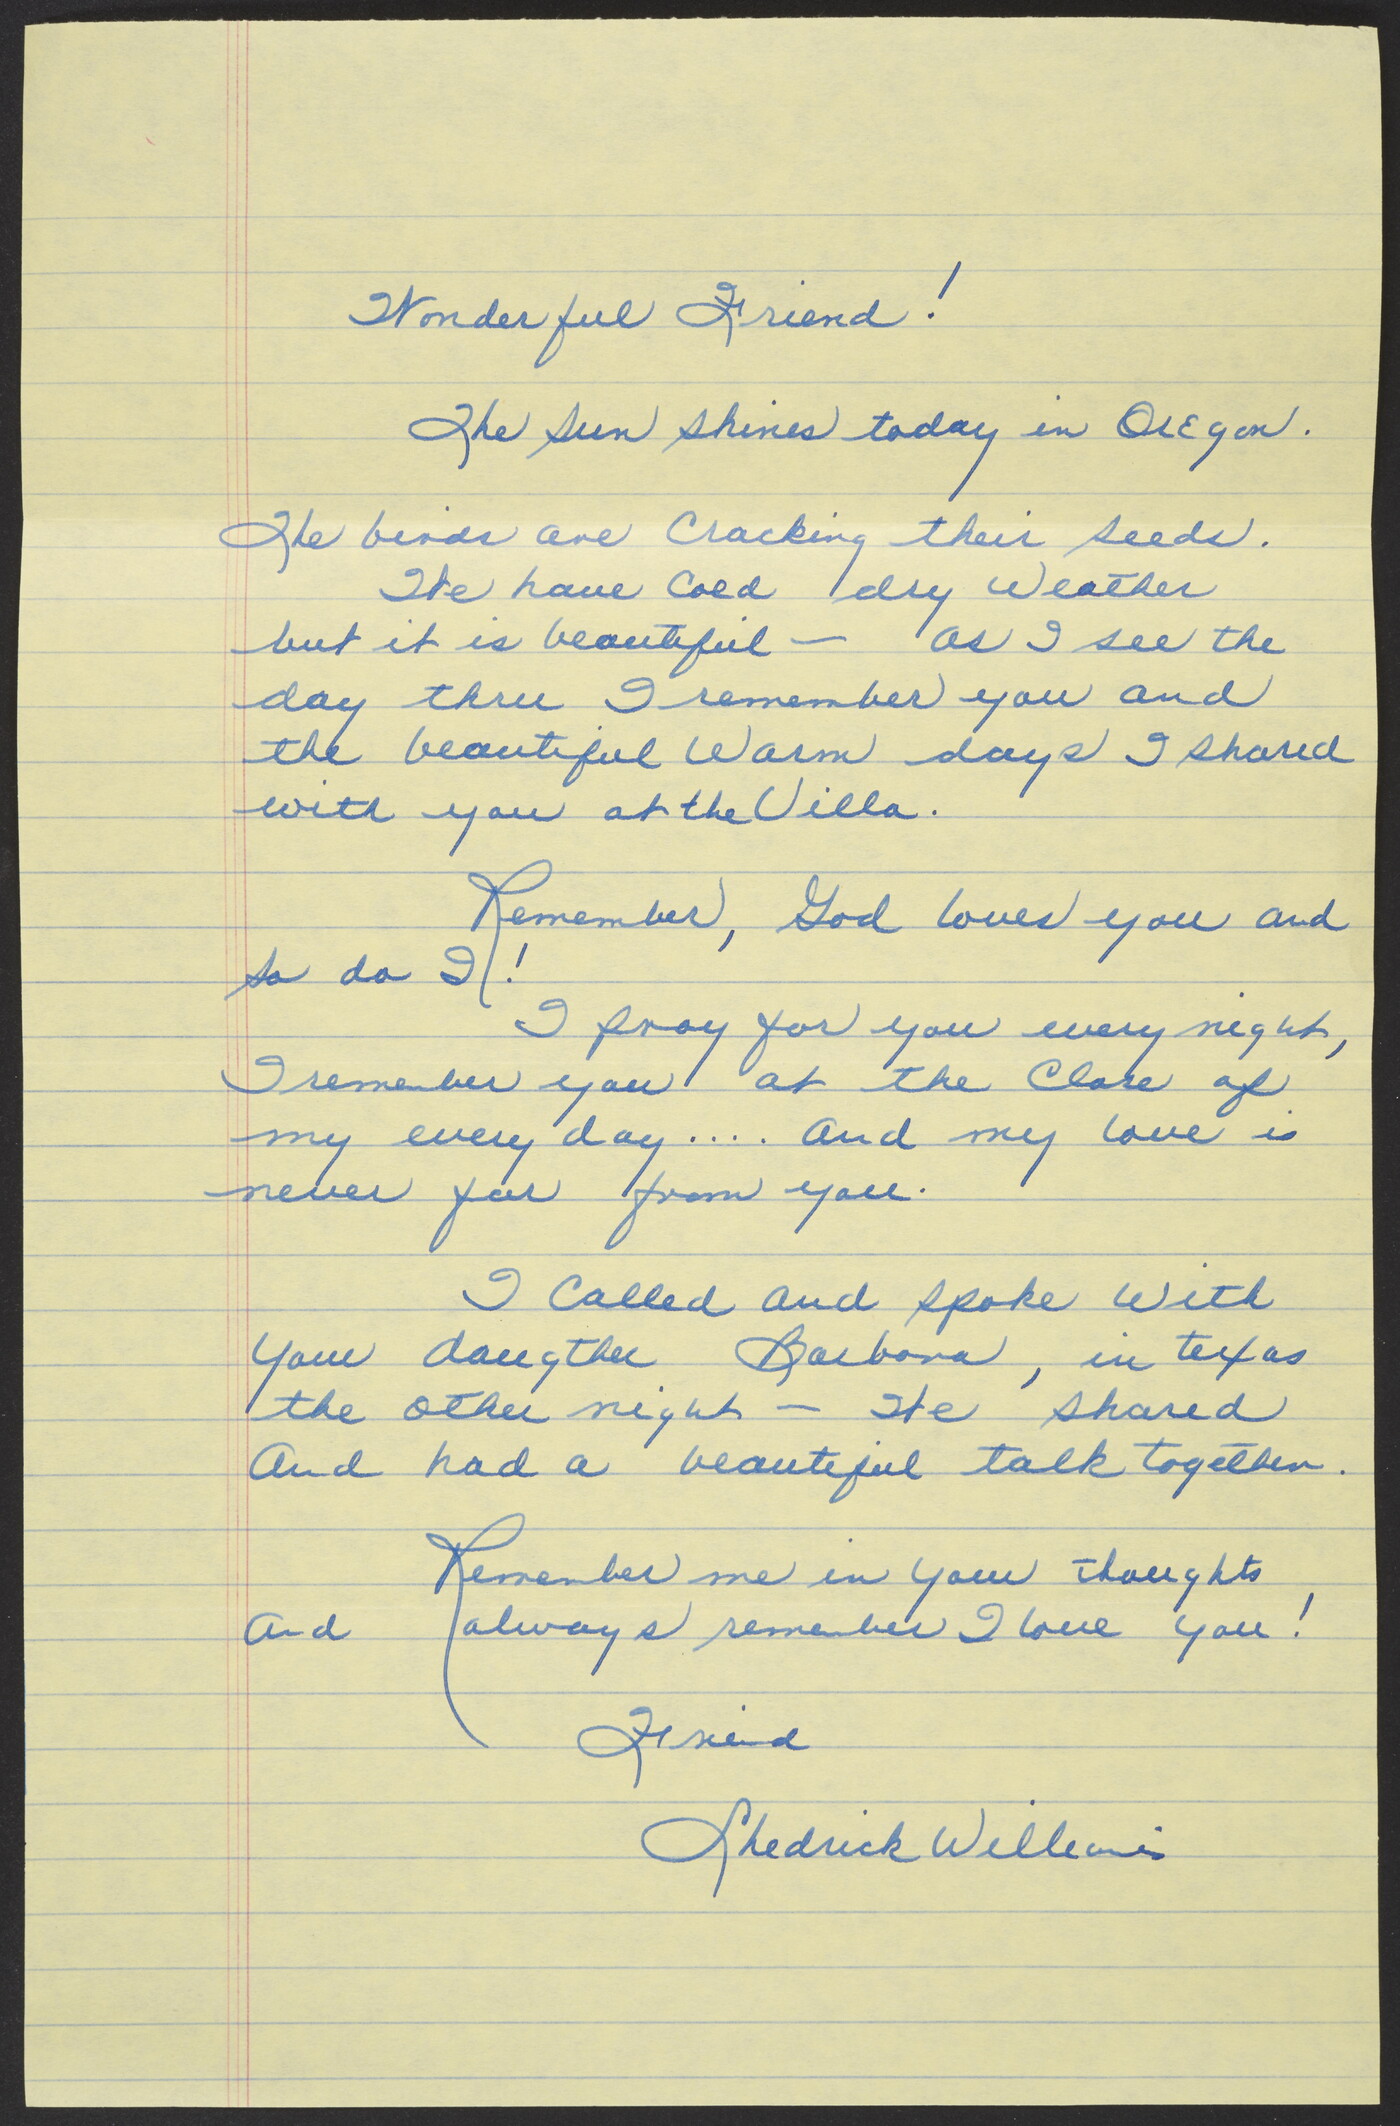 Wonderful Friend!
The sun shines today in Oregon.
The birds are Cracking their seeds.
We have Cold dry Weather
but it is beautiful — as I see the
day thru I remember you and
the beautiful Warm days I shared
with you at the Villa.
Remember, God loves you and
so do I!
I pray for you every night,
I remember you at the Close of
my every day.... and my love is
never far from you.
I Called and spoke With
your daugther Barbara, in texas
the other night — We shared
And had a beautiful talk together.
Remember me in your thoughts
And always remember I love you!
Friend
Shedrick Williams